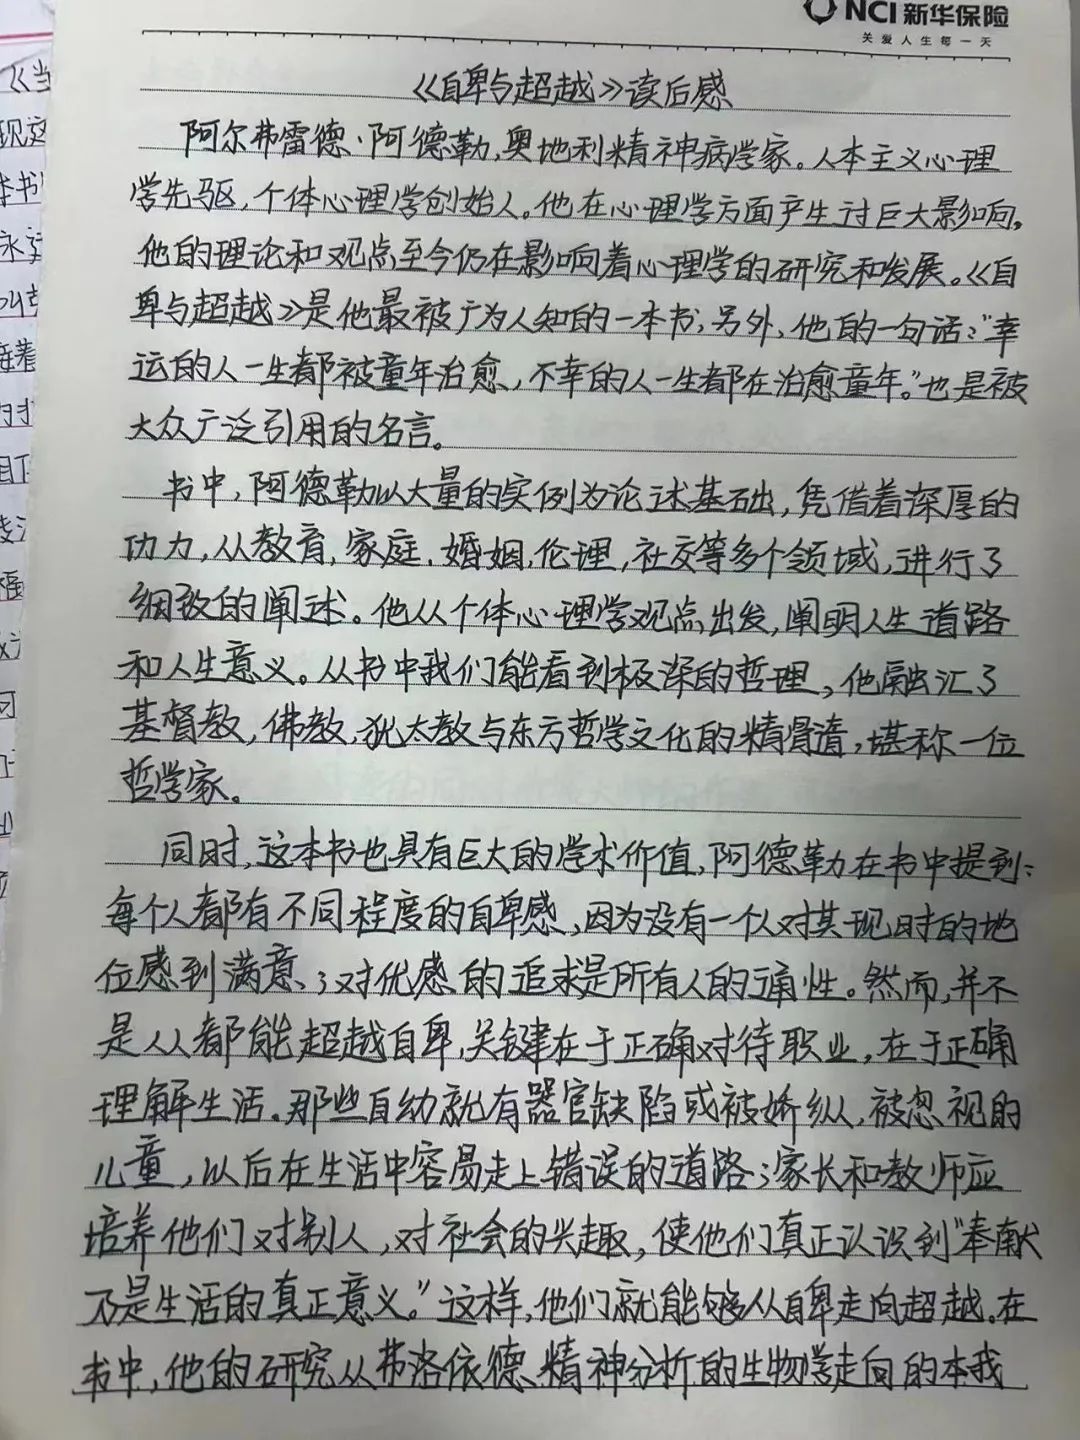 NCI 新华保险
关爱人生每一天
《自卑与超越》读后感
阿尔弗雷德·阿德勒,奥地利精神病学家。人本主义心理
学先驱,个体心理学创始人。他在心理学方面产生过巨大影响,
他的理论和观点至今仍在影响着心理学的研究和发展。《自
卑与超越》是他最被广为人知的一本书;另外,他的一句话:“幸
运的人一生都被童年治愈,不幸的人一生都在治愈童年。”也是被
大众广泛引用的名言。
书中,阿德勒以大量的实例为论述基础,凭借着深厚的
功力,从教育,家庭,婚姻,伦理,社交等多个领域,进行了
细致的阐述。他从个体心理学观点出发,阐明人生道路
和人生意义。从书中我们能看到极深的哲理,他融汇了
基督教,佛教,犹太教与东方哲学文化的精骨,堪称一位
哲学家。
同时,这本书也具有巨大的学术价值,阿德勒在书中提到:
每个人都有不同程度的自卑感,因为没有一个人对其现时的地
位感到满意;对优感的追求是所有人的通性。然而,并不
是人人都能超越自卑,关键在于正确对待职业,在于正确
理解生活。那些自幼就有器官缺陷或被娇纵,被忽视的
儿童,以后在生活中容易走上错误的道路;家长和教师应
培养他们对别人,对社会的兴趣,使他们真正认识到“奉献
乃是生活的真正意义。”这样,他们就能够从自卑走向超越。在
书中,他的研究从弗洛依德精神分析的生物学走向的本我
《当
现这
本书
永远
接着